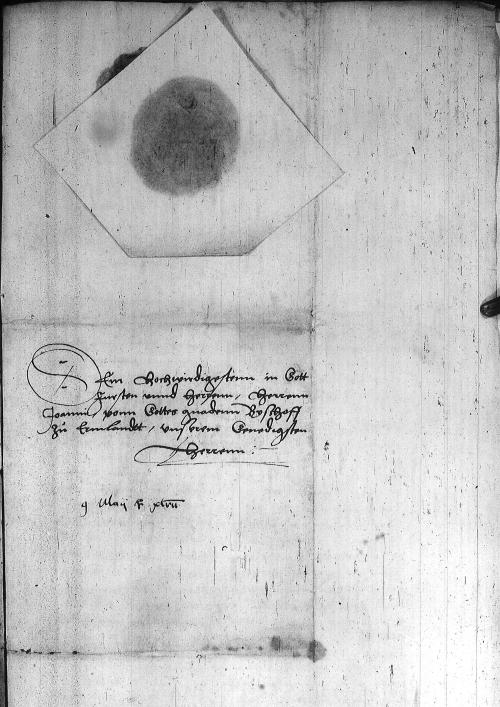 Dem Hochwirdigestenn in Gott
Fursten vnnd Herrenn, Herrenn
Joanni vonn Gottes gnadenn Byschoff
zu Ermlandt, vnserem Genedigsten
Herrenn:
9 Maij xlvii